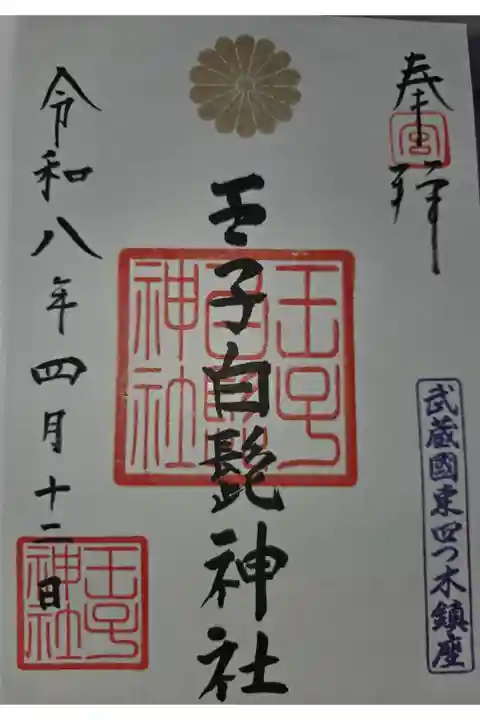 奉拝
宮
武蔵國東四つ木鎮座
王子白髭神社
王子白髭神社
令和八年四月十二日
王子神社